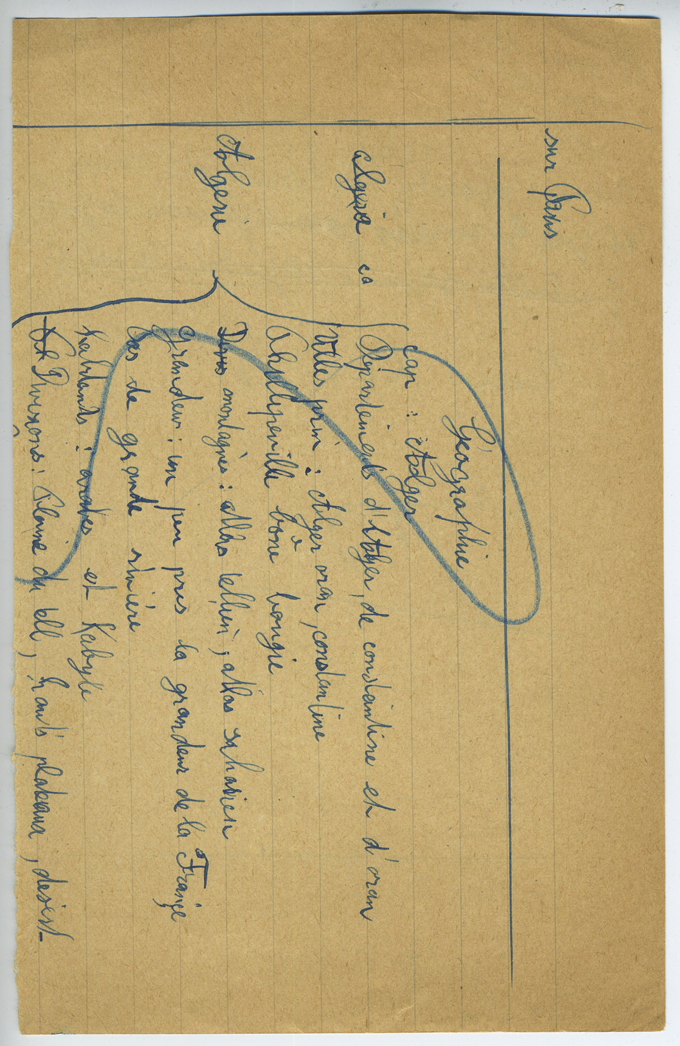 sur Paris
Géographie
cap : Alger
Algérie ca
Départements d'Alger, de constantine et d'oran
Villes prin : Alger oran, constantine
Phillipeville bône bougie
Algérie
montagnes : atlas tellien, atlas saharien
grandeur : un peu près la grandeur de la France
Pas de grande rivière
habitants : arabes et Kabyle
Divisions : Plaine du tell, hauts plateaux, désert